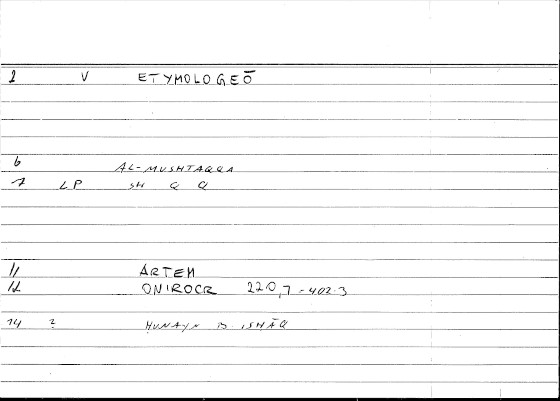 1 V ETYMOLOGEŌ
6 AL-MUSHTAQQA
7 LP SH Q Q
11 ARTEM
12 ONIROCR 220,7-402.3
14 2 HUNAYN B. ISHĀQ